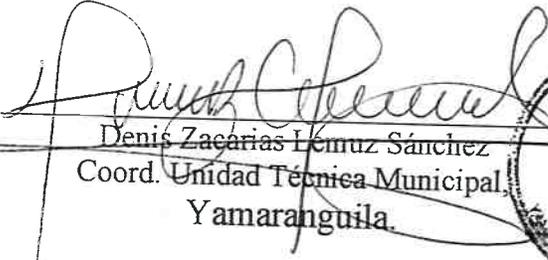 Denis Zacarías Lemuz Sánchez
Coord. Unidad Técnica Municipal,
Yamaranguila.